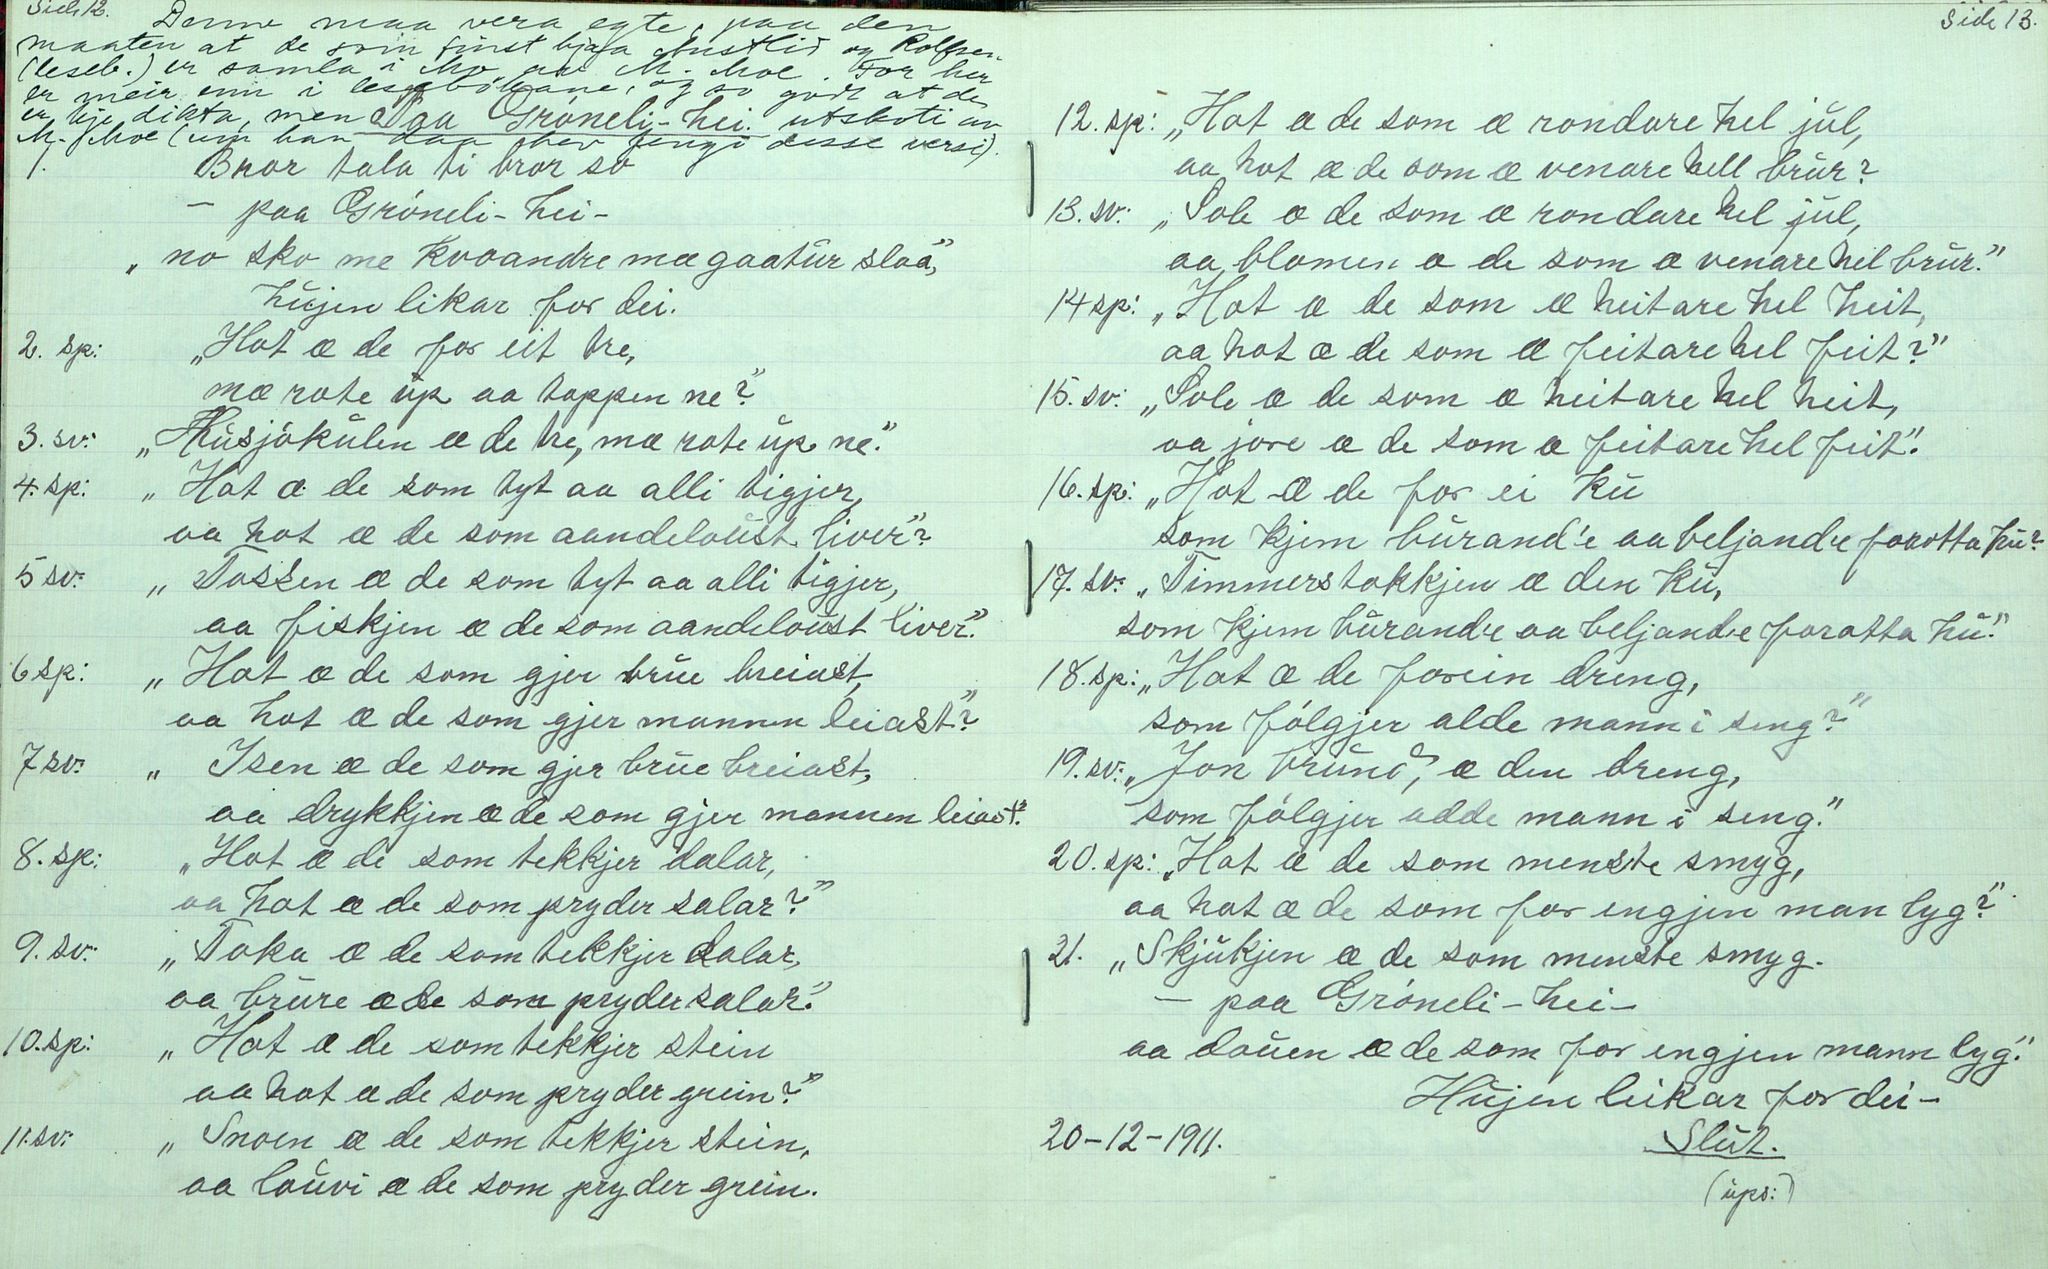 Side 12.
Denne maa vera egte, paa den
maaten at de som finst hjaa Austlid og Rolfsen
(leseb.) er samla i Mo av M. Moe. For her
er meir enn i lesebökane, og so godt at de
er kje dikta, men Paa Gröneli-hei. utskoti av
M. Moe (um han daa hev fengi desse versi).
1. Bror tala ti bror so
- paa Gröneli-hei-
„no sko me kvaandre mæ gaatur slaa",
hujen likar for dei.
2. sp: „Hot æ de for eit tre,
mæ rote up aa toppen ne?"
3. sv: „Husjökulen æ de tre, mæ rote up ne."
4. sp: „Hot æ de som tyt aa alli tigjer,
aa hot æ de som aandeloust liver"?
5 sv: „Fossen æ de som tyt aa alli tigjer,
aa fiskjen æ de som aandeloust liver."
6 sp: „Hot æ de som gjer brue breiast,
aa hot æ de som gjer mannen leiast?"
7 sv: „Isen æ de som gjer brue breiast,
aa drykkjen æ de som gjer mannen leiast."
8. sp: „Hot æ de som tekkjer dalar,
aa hot æ de som pryder salar?"
9. sv: „Toka æ de som tekkjer dalar,
aa brure æ de som pryder salar."
10. sp: „Hot æ de som tekkjer stein
aa hot æ de som pryder grein?"
11. sv: „Snoen æ de som tekkjer stein,
aa louvi æ de som pryder grein.
Side 13.
12. sp: „Hot æ de som æ rondare hel jul,
aa hot æ de som æ venare hell brur?
13. sv: „Sole æ de som æ rondare hel jul,
aa blomen æ de som æ venare hel brur."
14 sp: „Hot æ de som æ heitare hel heit,
aa hot æ de som æ feitare hel feit?"
15. sv: „Sole æ de som æ heitare hel heit,
aa jore æ de som æ feitare hel feit".
16. sp: „Hot æ de for ei ku
som kjem burand'e aa beljand'e foratta hu?
17. sv: „Timmerstokkjen æ den ku,
som kjem burand'e aa beljand'e foratta hu."
18. sp: „Hot æ de forein dreng,
som fölgjer alde mann i seng?"
19. sv: „Jon blund", æ den dreng,
som fölgjer adde mann i seng."
20. sp: „Hot æ de som menste smyg,
aa hot æ de som for engjen man lyg?"
21. „Skjukjen æ de som menste smyg.
- paa Gröneli-hei-
aa douen æ de som for engjen mann lyg."
Hujen leikar for dei-
20-12-1911. Slut.
(ups:)